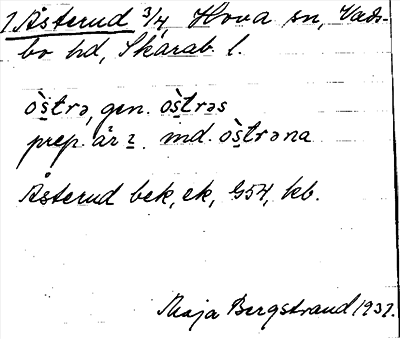 1. Åsterud 3/4, Hova sn, Vads-
bo hd, Skarab. l.
òs̱trə, gen. òs̱trəs
prep. är i. md. òs̱trəna
Åsterud bek, ek, G54, kb.
Maja Bergstrand 1932.